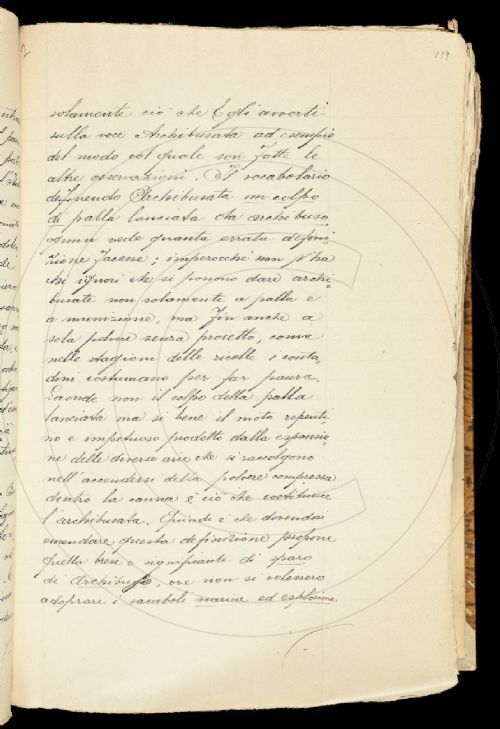 179
solamente ciò che Egli avvertì
sulla voce Archibusata ad esempio
del modo col quale son fatte le
altre osservazioni. Il vocabolario
definendo Archibusata un colpo
di palla lanciata da archibuso
ognun vede quanta errata defini-
zione facesse; imperocchè non v'ha
chi ignori che si possono dare archi-
busate non solamente a palla e
a munizione, ma fin anche a
sola polvere senza proietto, come
nelle stagioni delle ricolte i conta-
dini costumano per far paura.
Laonde non il colpo della palla
lanciata ma si bene il moto repenti-
no e impetuoso prodotto dalla espansio-
ne delle diverse arie che si raccolgono
nell'accendersi della polvere compressa
dentro la canna è ciò che costituisce
l'archibusata. Quindi è che dovendosi
emendare questa definizione propone
quella breve e significante di sparo
di Archibugio, ove non si volessero
adoprare i vocaboli scarica ed esplosione